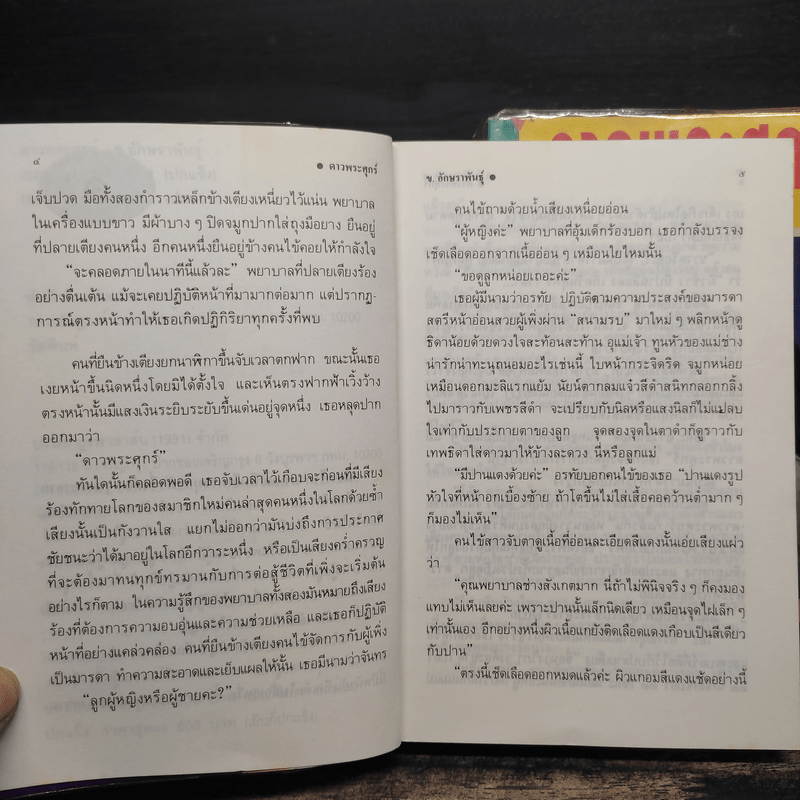 ๔
● ดาวพระศุกร์
เจ็บปวด มือทั้งสองกำราวเหล็กข้างเตียงเหนี่ยวไว้แน่น พยาบาล
ในเครื่องแบบขาว มีผ้าบาง ๆ ปิดจมูกปากใส่ถุงมือยาง ยืนอยู่
ที่ปลายเตียงคนหนึ่ง อีกคนหนึ่งยืนอยู่ข้างคนไข้คอยให้กำลังใจ
“จะคลอดภายในนาทีนี้แล้วละ” พยาบาลที่ปลายเตียงร้อง
อย่างตื่นเต้น แม้จะเคยปฏิบัติหน้าที่มามากต่อมาก แต่ปรากฏ-
การณ์ตรงหน้าทำให้เธอเกิดปฏิกิริยาทุกครั้งที่พบ
คนที่ยืนข้างเตียงยกนาฬิกาขึ้นจับเวลาตกฟาก ขณะนั้นเธอ
เงยหน้าขึ้นนิดหนึ่งโดยมิได้ตั้งใจ และเห็นตรงฟากฟ้าเวิ้งว้าง
ตรงหน้านั้นมีแสงเงินระยิบระยับขึ้นเด่นอยู่จุดหนึ่ง เธอหลุดปาก
ออกมาว่า
“ดาวพระศุกร์”
ทันใดนั้นก็คลอดพอดี เธอจับเวลาไว้เกือบจะก่อนที่มีเสียง
ร้องทักทายโลกของสมาชิกใหม่คนล่าสุดคนหนึ่งในโลกด้วยซ้ำ
เสียงนั้นเป็นกังวานใส แยกไม่ออกว่ามันบ่งถึงการประกาศ
ชัยชนะว่าได้มาอยู่ในโลกอีกวาระหนึ่ง หรือเป็นเสียงคร่ำครวญ
ที่จะต้องมาทนทุกข์ทรมานกับการต่อสู้ชีวิตที่เพิ่งจะเริ่มต้น
อย่างไรก็ตาม ในความรู้สึกของพยาบาลทั้งสองมันหมายถึงเสียง
ร้องที่ต้องการความอบอุ่นและความช่วยเหลือ และเธอก็ปฏิบัติ
หน้าที่อย่างแคล่วคล่อง คนที่ยืนข้างเตียงคนไข้จัดการกับผู้เพิ่ง
เป็นมารดา ทำความสะอาดและเย็บแผลให้นั้น เธอมีนามว่าจันทร
“ลูกผู้หญิงหรือผู้ชายคะ?”
ข. อักษราพันธุ์ ●
๕
คนไข้ถามด้วยน้ำเสียงเหนื่อยอ่อน
“ผู้หญิงค่ะ” พยาบาลที่อุ้มเด็กร้องบอก เธอกำลังบรรจง
เช็ดเลือดออกจากเนื้ออ่อน ๆ เหมือนใยไหมนั้น
“ขอดูลูกหน่อยเถอะค่ะ”
เธอผู้มีนามว่าอรทัย ปฏิบัติตามความประสงค์ของมารดา
สตรีหน้าอ่อนสวยผู้เพิ่งผ่าน “สนามรบ” มาใหม่ ๆ พลิกหน้าดู
ธิดาน้อยด้วยดวงใจสะท้อนสะท้าน อุแม่เจ้า ทูนหัวของแม่ช่าง
น่ารักน่าทะนุถนอมอะไรเช่นนี้ ใบหน้ากระจิดริด จมูกหน่อย
เหมือนดอกมะลิแรกแย้ม นัยน์ตากลมแจ๋วสีดำสนิทกลอกกลิ้ง
ไปมาราวกับเพชรสีดำ จะเปรียบกับนิลหรือแสงนิลก็ไม่แปลบ
ใจเท่ากับประกายตาของลูก จุดสองจุดในตาดำก็ดูราวกับ
เทพธิดาใส่ดาวมาให้ข้างละดวง นี่หรือลูกแม่
“มีปานแดงด้วยค่ะ” อรทัยบอกคนไข้ของเธอ “ปานแดงรูป
หัวใจที่หน้าอกเบื้องซ้าย ถ้าโตขึ้นไม่ใส่เสื้อคอคว้านต่ำมาก ๆ
ก็มองไม่เห็น”
คนไข้สาวจับตาดูเนื้อที่อ่อนละเอียดสีแดงนั้นเอ่ยเสียงแผ่ว
ว่า
“คุณพยาบาลช่างสังเกตมาก นี่ถ้าไม่พินิจจริง ๆ ก็คงมอง
แทบไม่เห็นเลยค่ะ เพราะปานนั้นเล็กนิดเดียว เหมือนจุดไฝเล็ก ๆ
เท่านั้นเอง อีกอย่างหนึ่งผิวเนื้อแกยังติดเลือดแดงเกือบเป็นสีเดียว
กับปาน”
“ตรงนี้เช็ดเลือดออกหมดแล้วค่ะ ผิวแกอมสีแดงแช้ดอย่างนี้